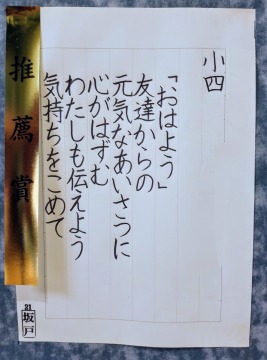 小四
「おはよう」
友達からの
元気なあいさつに
心がはずむ
わたしも伝えよう
気持ちをこめて
推薦賞
21
坂戸